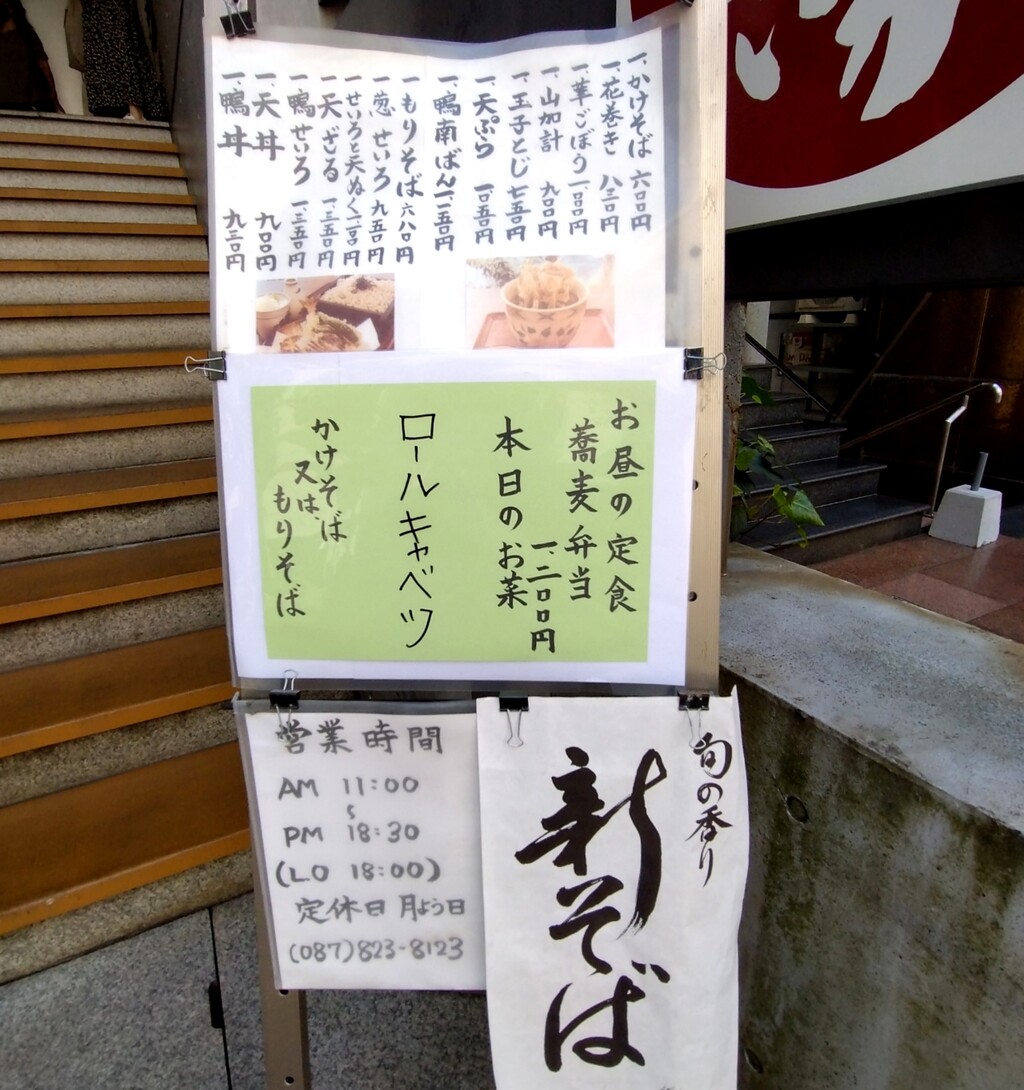 一、かけそば 六00円
一、花巻き 八三0円
一、華ごぼう 一、一00円
一、山加計 九00円
一、玉子とじ 七五0円
一、天ぷら 一0五0円
一、鴨南ばん 一、一五0円
一、もりそば 六八0円
一、葱せいろ 九五0円
一、せいろと天ぬく 一、二00円
一、天ざる 一、三五0円
一、鴨せいろ 一、三五0円
一、天丼 九00円
一、鴨丼 九三0円
お昼の定食
蕎麦弁当
一、二00円
本日のお菜
ロールキャベツ
かけそば
又は
もりそば
営業時間
AM 11:00
〜
PM 18:30
(L.O 18:00)
定休日 月よう日
(087)823-8123
旬の香り
新そば